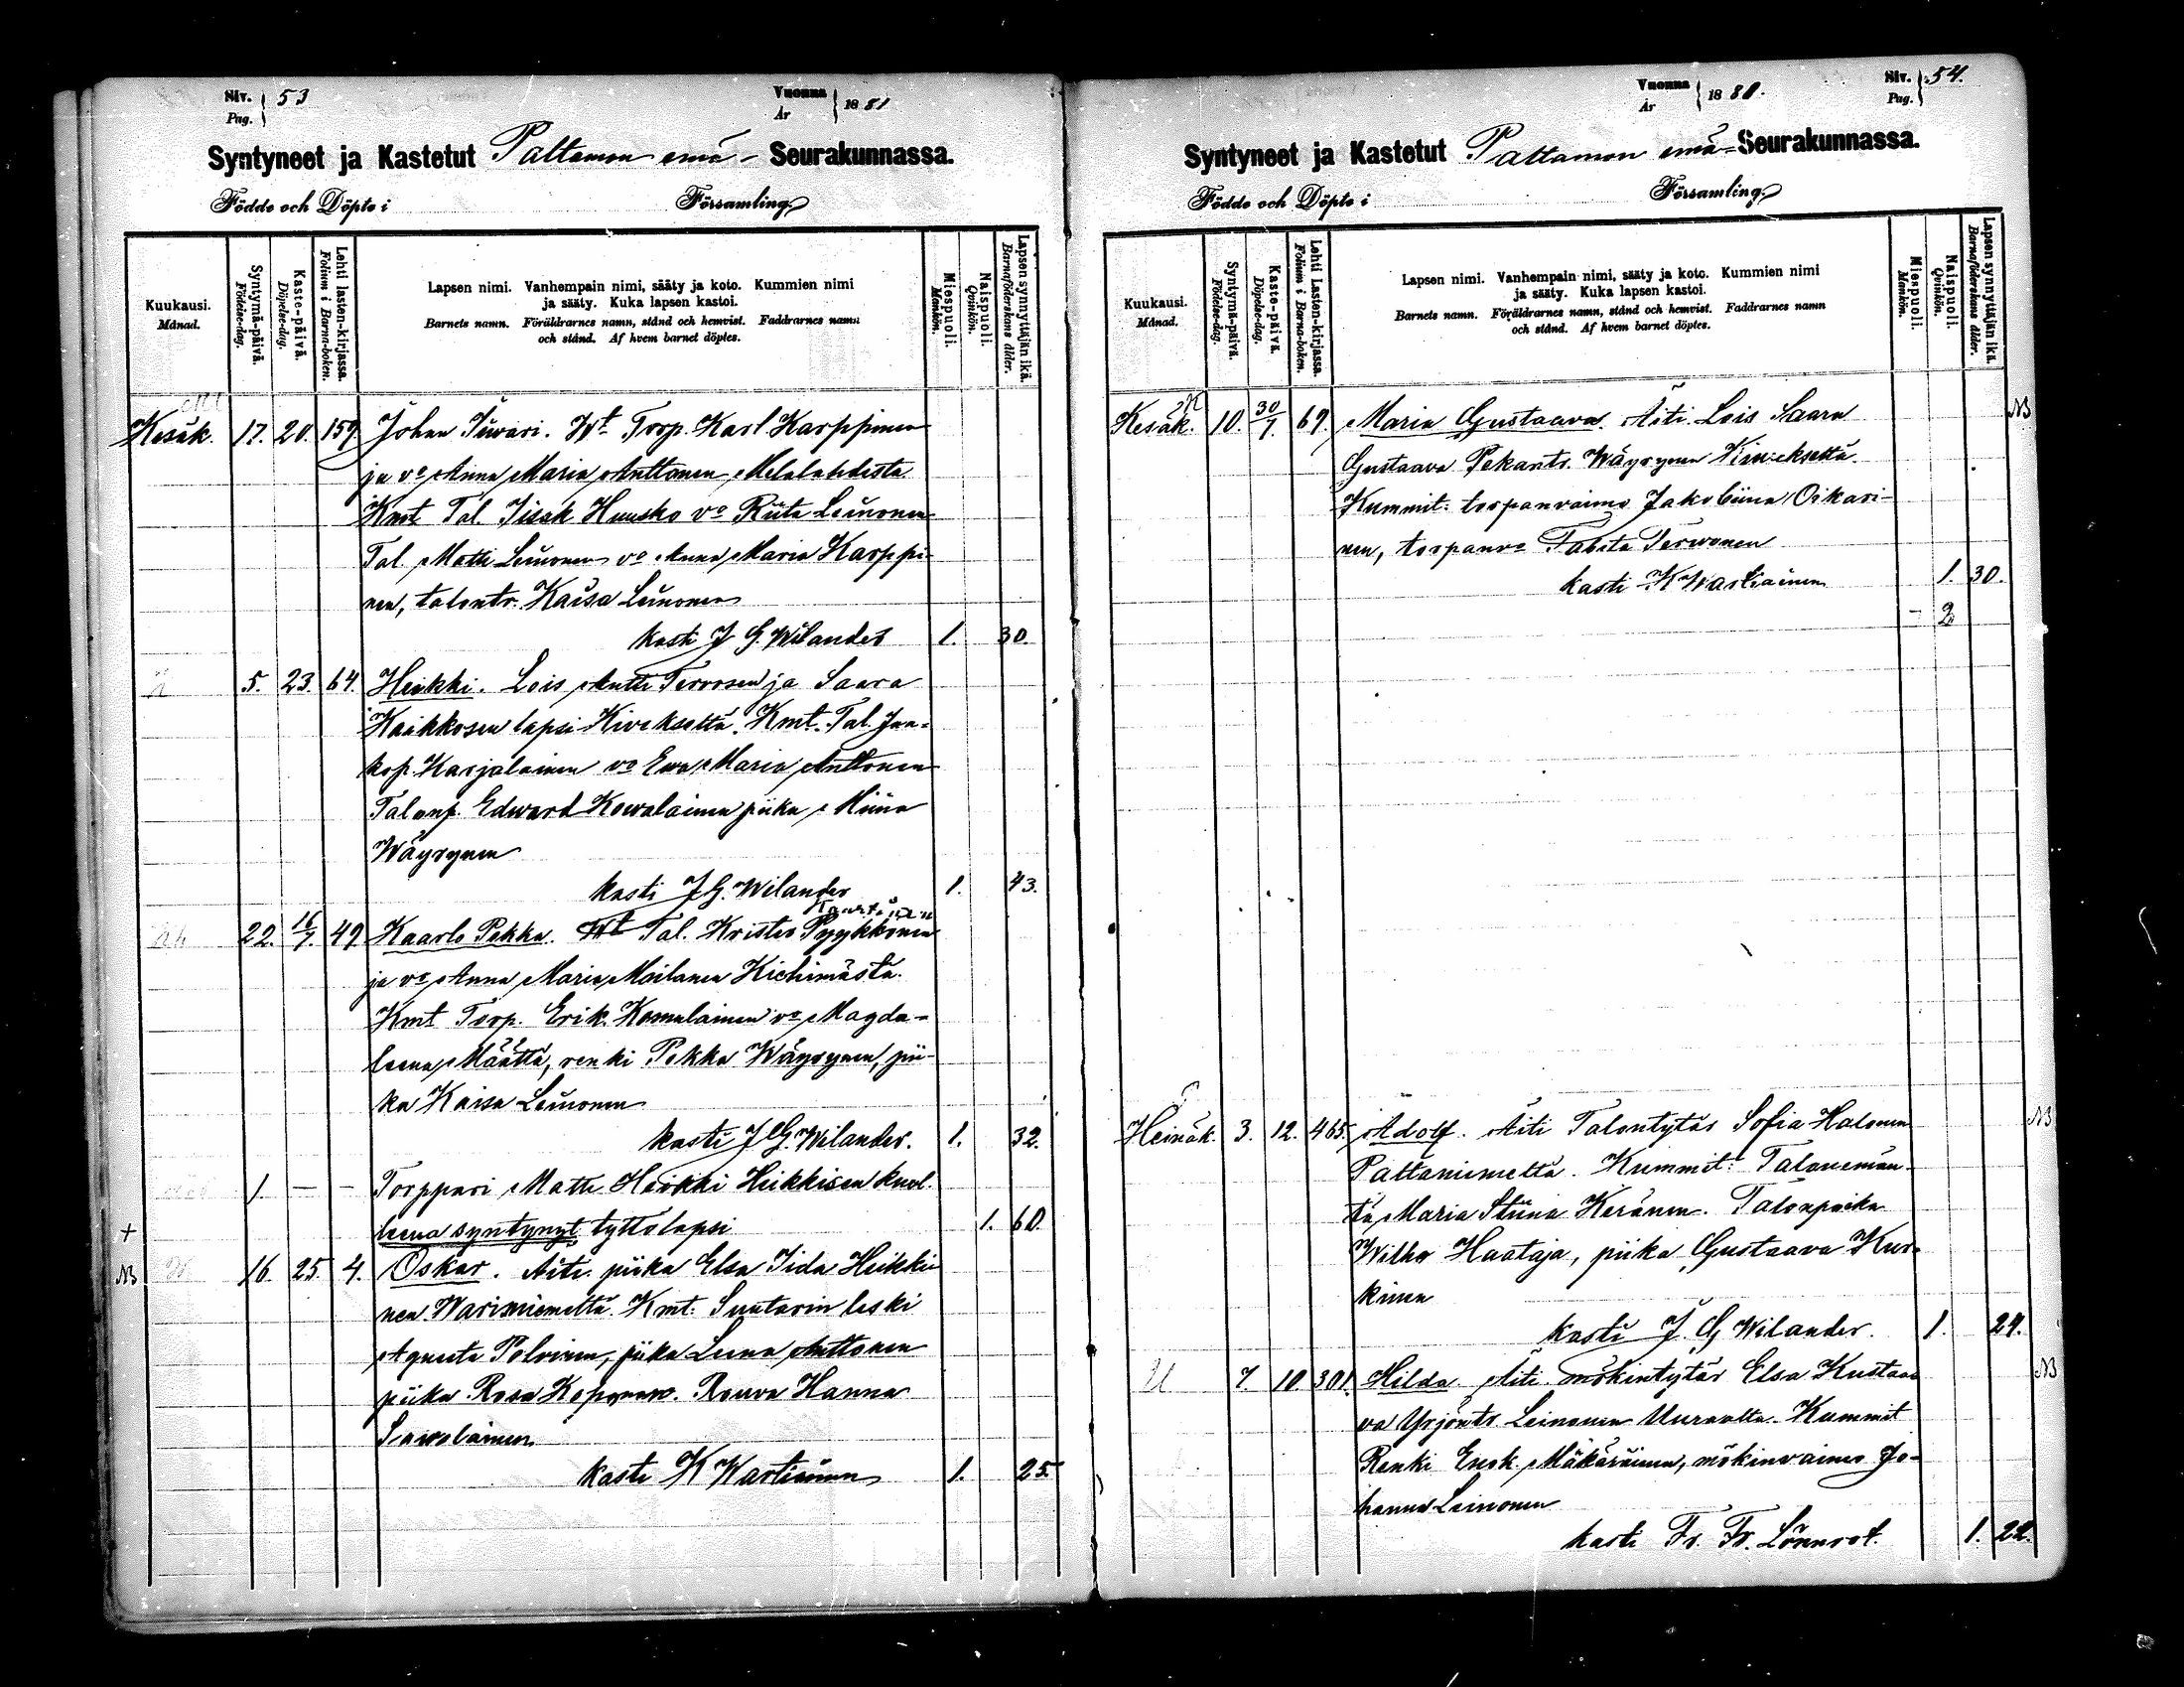 Siv. Pag. 53
Vuonna År 1881
Syntyneet ja Kastetut Paltamon emä- Seurakunnassa.
Födde och Döpte i Församling
Kuukausi. Månad.
Syntymä-päivä. Födelse-dag.
Kaste-päivä. Döpelse-dag.
Lehti lasten-kirjassa. Folium i Barna-boken.
Lapsen nimi. Vanhempain nimi, sääty ja koto. Kummien nimi
ja sääty. Kuka lapsen kastoi.
Barnets namn. Föräldrarnes namn, stånd och hemvist. Faddrarnes namn
och stånd. Af hvem barnet döptes.
Miespuoli. Mankön.
Naispuoli. Qvinkön.
Lapsen synnyttäjän ikä. Barnaföderskans ålder.
Kesäk. 17. 20. 159 Johan Iivari. Wt Torp. Karl Karppinen
ja vo Anna Maria Anttonen Melalahdesta
Kmt Tal. Iisak Huusko vo Riita Leinonen
Tal. Matti Leinonen vo Anna Maria Karppi-
nen, talontr. Kaisa Leinonen
kasti J G. Wilander 1. 30.
5. 23. 64. Heikki. Lois Antti Tervosen ja Saara
Kaikkosen lapsi Kiveksettä. Kmt. Tal. Jaa-
kop. Karjalainen vo Ewa Maria Anttonen
Talonp. Edward Kowalainen piika Miina
Wäyrynen
kasti J G. Wilander 1. 43.
22. 16/7. 49 Kaarlo Pekka. Wt Tal. Krister Pyykkönen
ja vo Anna Maria Moilanen Kiehimästä.
Kmt Torp. Erik Komulainen vo Magda-
leena Määttä, renki Pekka Wäyrynen, pii-
ka Kaisa Leinonen
kasti J G. Wilander. 1. 32.
1. — — Torppari Matti Heikki Heikkisen kuol-
+ leena syntynyt tyttölapsi 1. 60.
NB 16. 25 4. Oskar. Äiti piika Elsa Iida Heikki-
nen Warisniemeltä. Kmt: Suutarin leski
Agneeta Polvinen, piika Leena Anttonen
piika Rosa Kopponen. Rouva Hanna
Sawolainen
kasti K Wartiainen 1. 25.
Siv. Pag. 54.
Vuonna År 1881.
Syntyneet ja Kastetut Paltamon emä- Seurakunnassa.
Födde och Döpte i Församling
Kuukausi. Månad.
Syntymä-päivä. Födelse-dag.
Kaste-päivä. Döpelse-dag.
Lehti Lasten-kirjassa. Folium i Barna-boken.
Lapsen nimi. Vanhempain nimi, sääty ja koto. Kummien nimi
ja sääty. Kuka lapsen kastoi.
Barnets namn. Föräldrarnes namn, stånd och hemvist. Faddrarnes namn
och stånd. Af hvem barnet döptes.
Miespuoli. Mankön.
Naispuoli. Qvinkön.
Lapsen synnyttäjän ikä. Barnaföderskans ålder.
Kesäk. 10. 30/7. 69 Maria Gustaava. Äiti Lois Saara NB
Gustaava Pekantr. Wäyrynen Kiveksettä.
Kummit: torpanvaimo Jakobiina Oikari-
nen, torpanvo Tabita Terwonen
kasti K Wartiainen 1. 30.
- 2
Heinäk. 3. 12. 465. Adolf. Äiti Talontytär Sofia Halonen NB
Paltaniemeltä. Kummit: Talonemän-
tä Maria Stiina Keränen. Talonpoika
Wilho Haataja, piika Gustaava Kur-
kinen
kasti J. G Wilander. 1. 24.
U 7. 10 301. Hilda. Äiti mökintytär Elsa Kustaa- NB
va Yrjöntr. Leinonen Uuraalta. Kummit
Renki Enok Mäkäräinen, mökinvaimo Jo-
hanna Leinonen
kasti Fr. Fr. Lönnrot. 1. 22.